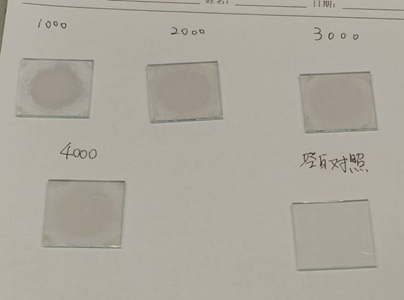 姓名: 日期:
1000 2000 3000
4000 空白对照